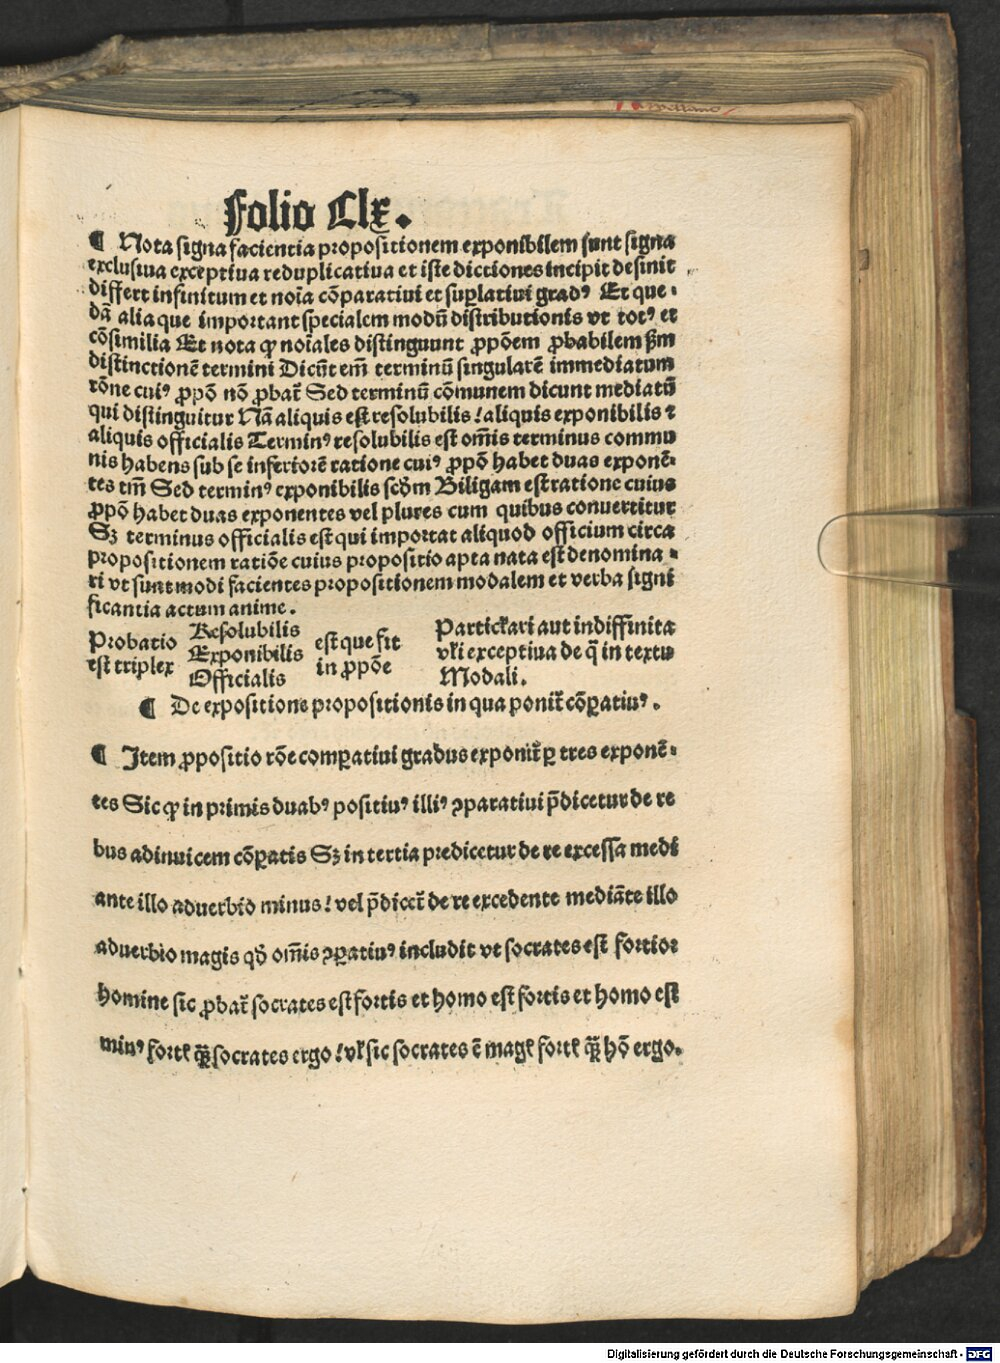 Folio Clx.
¶ Nota signa facientia propositionem exponibilem sunt signa
exclusiua exceptiua reduplicatiua et iste dictiones incipit desinit
differt infinitum et noīa cōparatiui et suꝑlatiui gradꝰ Et que-
dā alia que important specialem modū distributionis vt totꝰ et
cōsimilia Et nota ꝙ noīales distinguunt ꝓpōem ꝓbabilem ẜm
distinctionē termini Dicūt em̄ terminū singularē immediatum
rōne cuiꝰ ꝓpō nō ꝓbat̄ Sed terminū cōmunem dicunt mediatū
qui distinguitur Nā aliquis est resolubilis / aliquis exponibilis ⁊
aliquis officialis Terminꝰ resolubilis est om̄is terminus commu
nis habens sub se inferiorē ratione cuiꝰ ꝓpō habet duas exponē-
tes tm̄ Sed terminꝰ exponibilis scd̄m Biligam est ratione cuius
ꝓpō habet duas exponentes vel plures cum quibus conuertitur
Sꝫ terminus officialis est qui importat aliquod officium circa
propositionem ratiōe cuius propositio apta nata est denomina-
ri vt sunt modi facientes propositionem modalem et verba signi
ficantia actum anime.
Probatio
est triplex
Resolubilis
Exponibilis
Officialis
est que fit
in ꝓpōe
Particl̄ari aut indiffinita
vl̄i exceptiua de q̄ in textu
Modali.
¶ De expositione propositionis in qua ponit̄ cōꝑatiuꝰ.
¶ Item ꝓpositio rōe comꝑatiui gradus exponit̄ ꝑ tres exponē-
tes Sic ꝙ in primis duabꝰ positiuꝰ illiꝰ ꝯparatiui p̄dicetur de re
bus adinuicem cōꝑatis Sꝫ in tertia predicetur de re excessa medi
ante illo aduerbio minus / vel p̄dicet̄ de re excedente mediāte illo
aduerbio magis qd̄ om̄is ꝯꝑatiuꝰ includit vt socrates est fortior
homine sic ꝓbat̄ socrates est fortis et homo est fortis et homo est
minꝰ fortꝭ q̄ꝫ socrates ergo / vl̄ sic socrates ē magꝭ fortꝭ q̄ꝫ hō ergo.
Digitalisierung gefördert durch die Deutsche Forschungsgemeinschaft - DFG